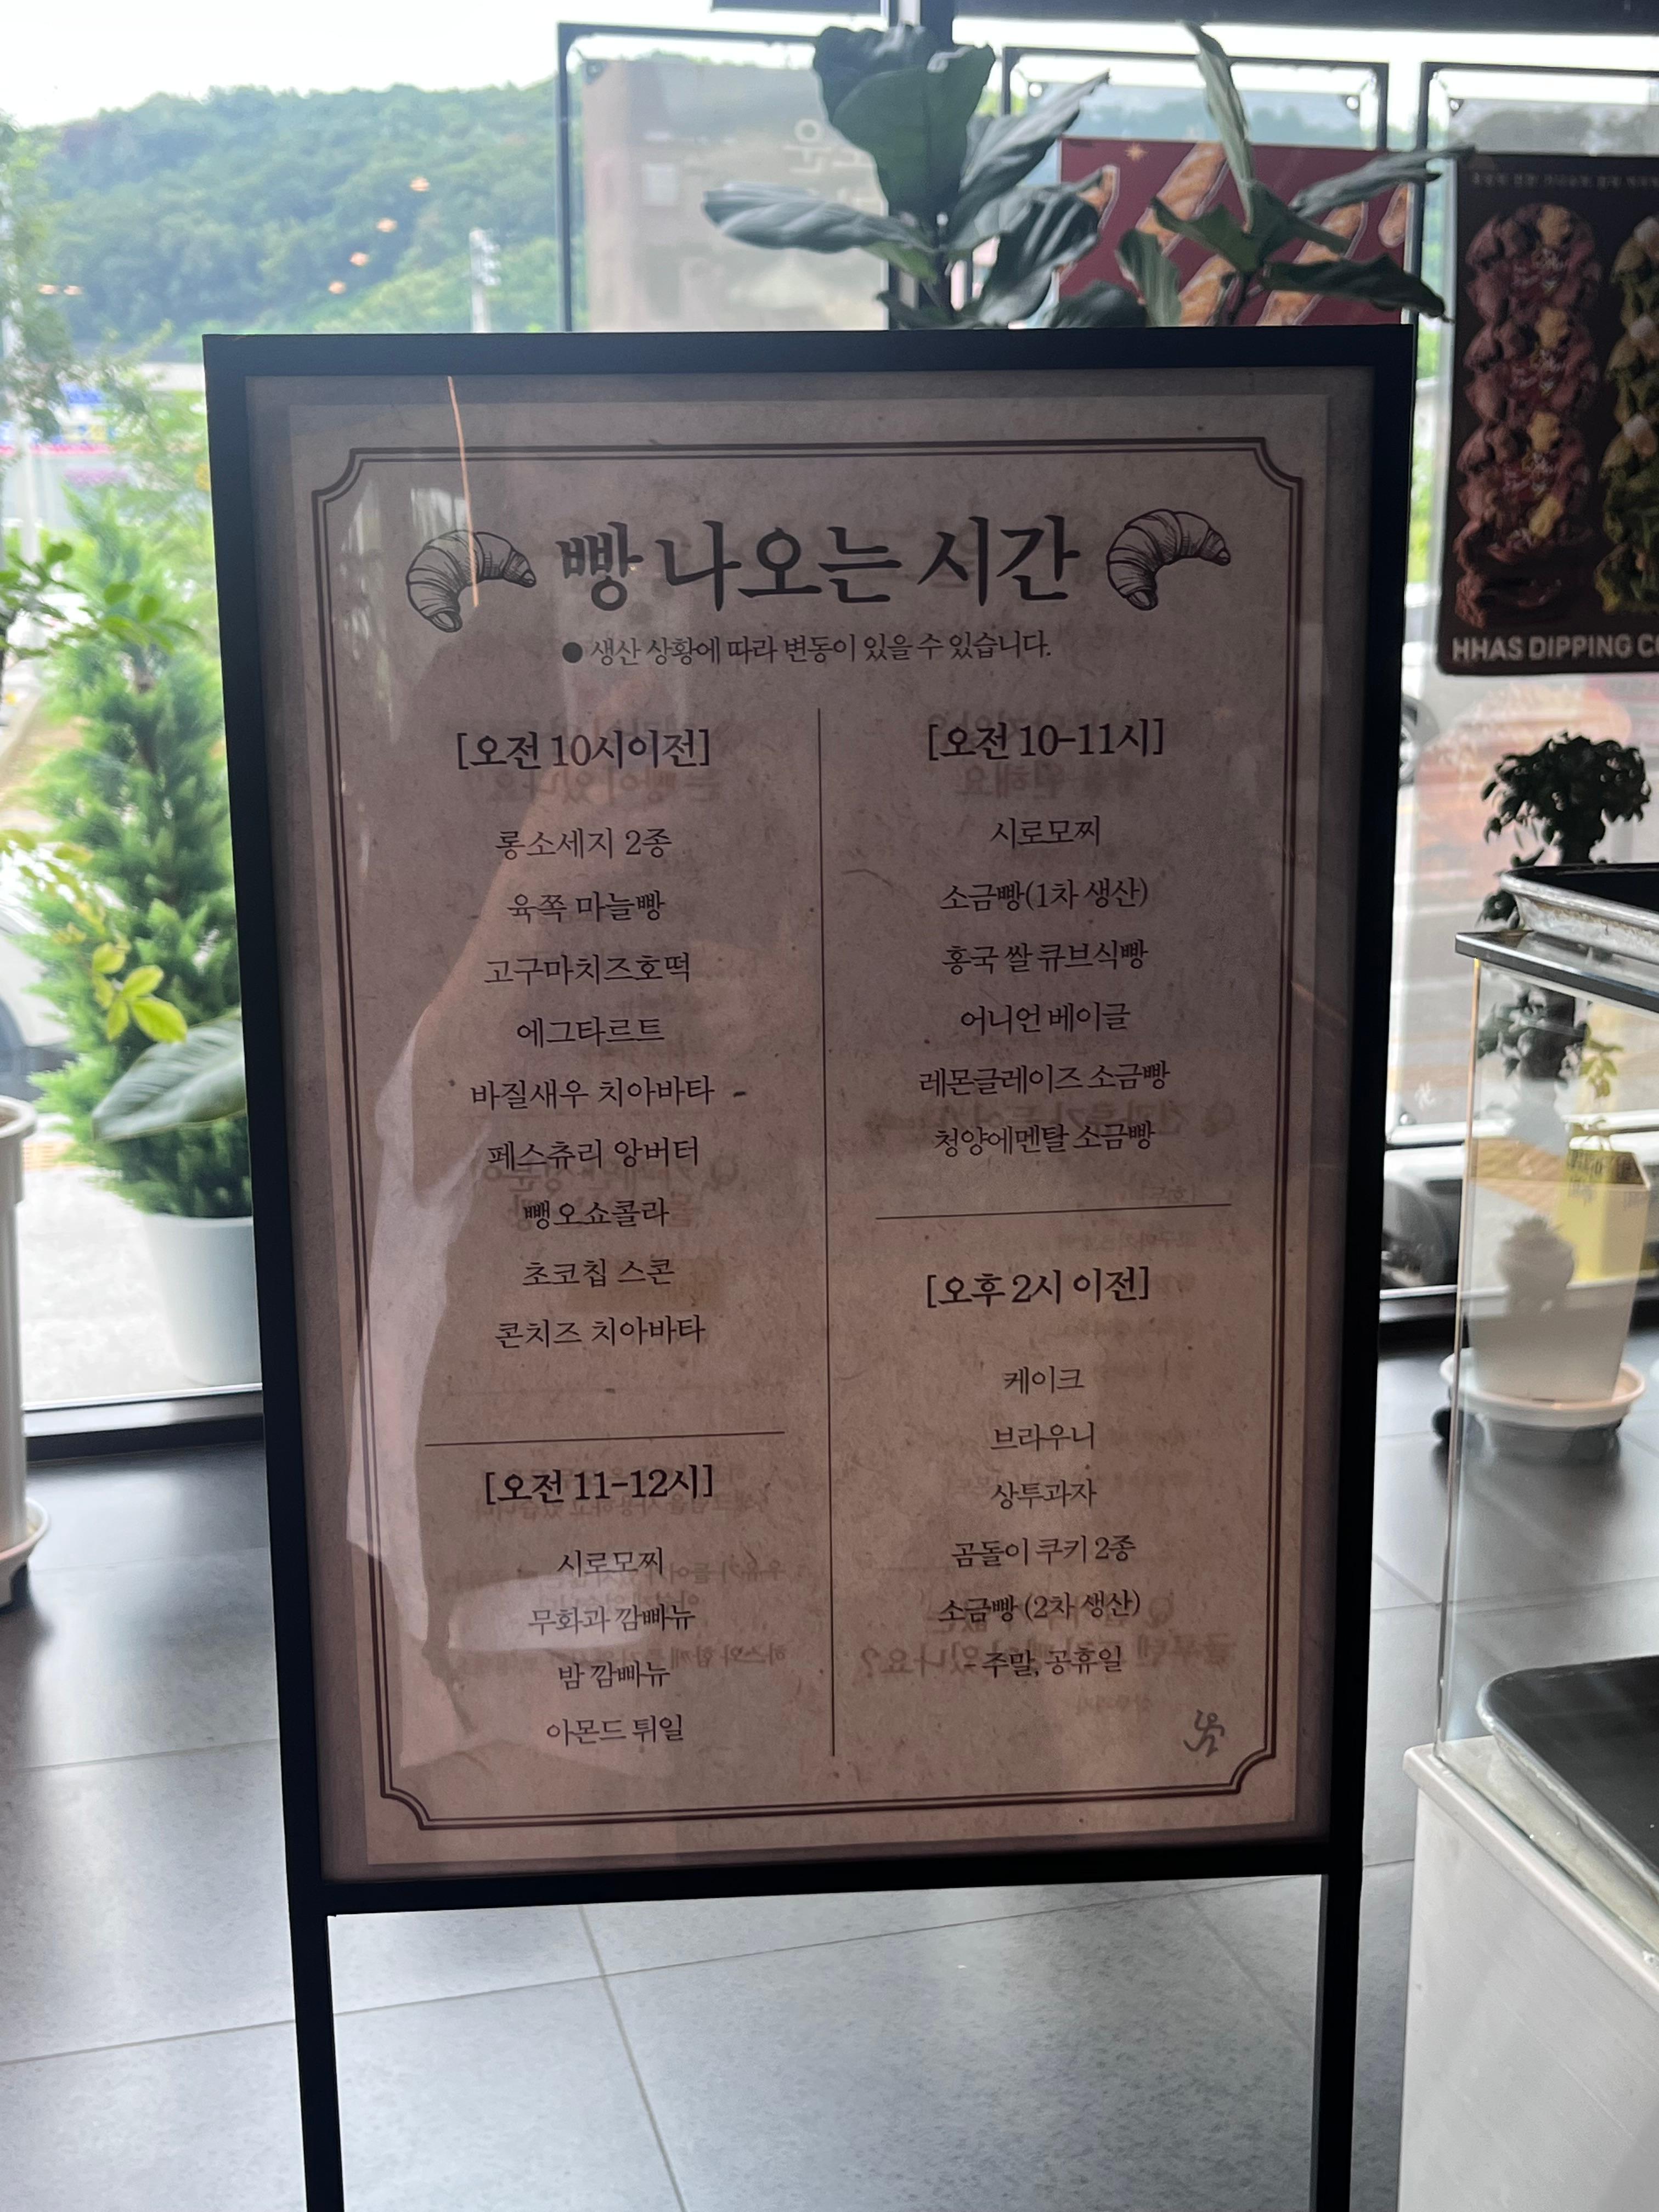 빵 나오는 시간
● 생산 상황에 따라 변동이 있을 수 있습니다.
[오전 10시이전]
롱소세지 2종
육쪽 마늘빵
고구마치즈호떡
에그타르트
바질새우 치아바타
페스츄리 앙버터
뺑오쇼콜라
초코칩 스콘
콘치즈 치아바타
[오전 11-12시]
시로모찌
무화과 깜빠뉴
밤 깜빠뉴
아몬드 튀일
[오전 10-11시]
시로모찌
소금빵(1차 생산)
홍국 쌀 큐브식빵
어니언 베이글
레몬글레이즈 소금빵
청양에멘탈 소금빵
[오후 2시 이전]
케이크
브라우니
상투과자
곰돌이 쿠키 2종
소금빵 (2차 생산)
- 주말, 공휴일
HHAS DIPPING